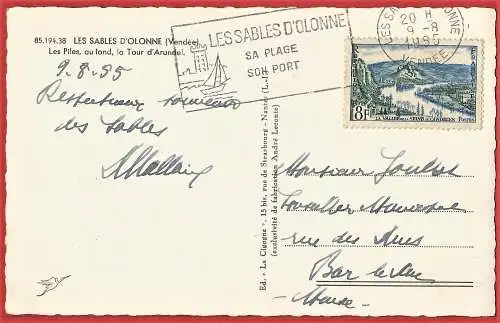 85.194.38 LES SABLES D'OLONNE (Vendée)
Les Piles, au fond, la Tour d'Arundel.
9-8-55
Respectueux souvenirs
des Sables
LES SABLES D'OLONNE
SA PLAGE
SON PORT
20 H
9-8
1955
VENDÉE
8F
LA VALLÉE DE LA SEINE AUX ANDELYS Postes
Ed. " La Cigogne ", 15 bis, rue de Strasbourg - Nantes (L.-I.)
(exclusivité de fabrication André Leconte)
Monsieur
Conseiller Municipal
rue des
Bar le Duc
Meuse